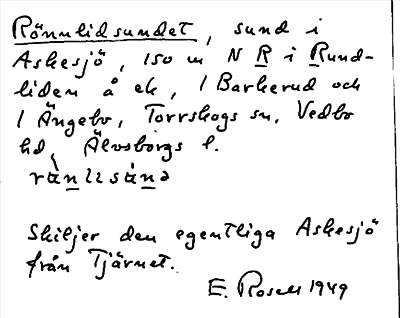 Rönnlidsundet, sund i
Askesjö, 150 m N R i Rund-
liden å ek, 1 Backerud och
1 Ängebo, Torrskogs sn, Vedbo
hd, Älvsborgs l.
Skiljer den egentliga Askesjö
från Tjärnet.
E. Rosell 1949